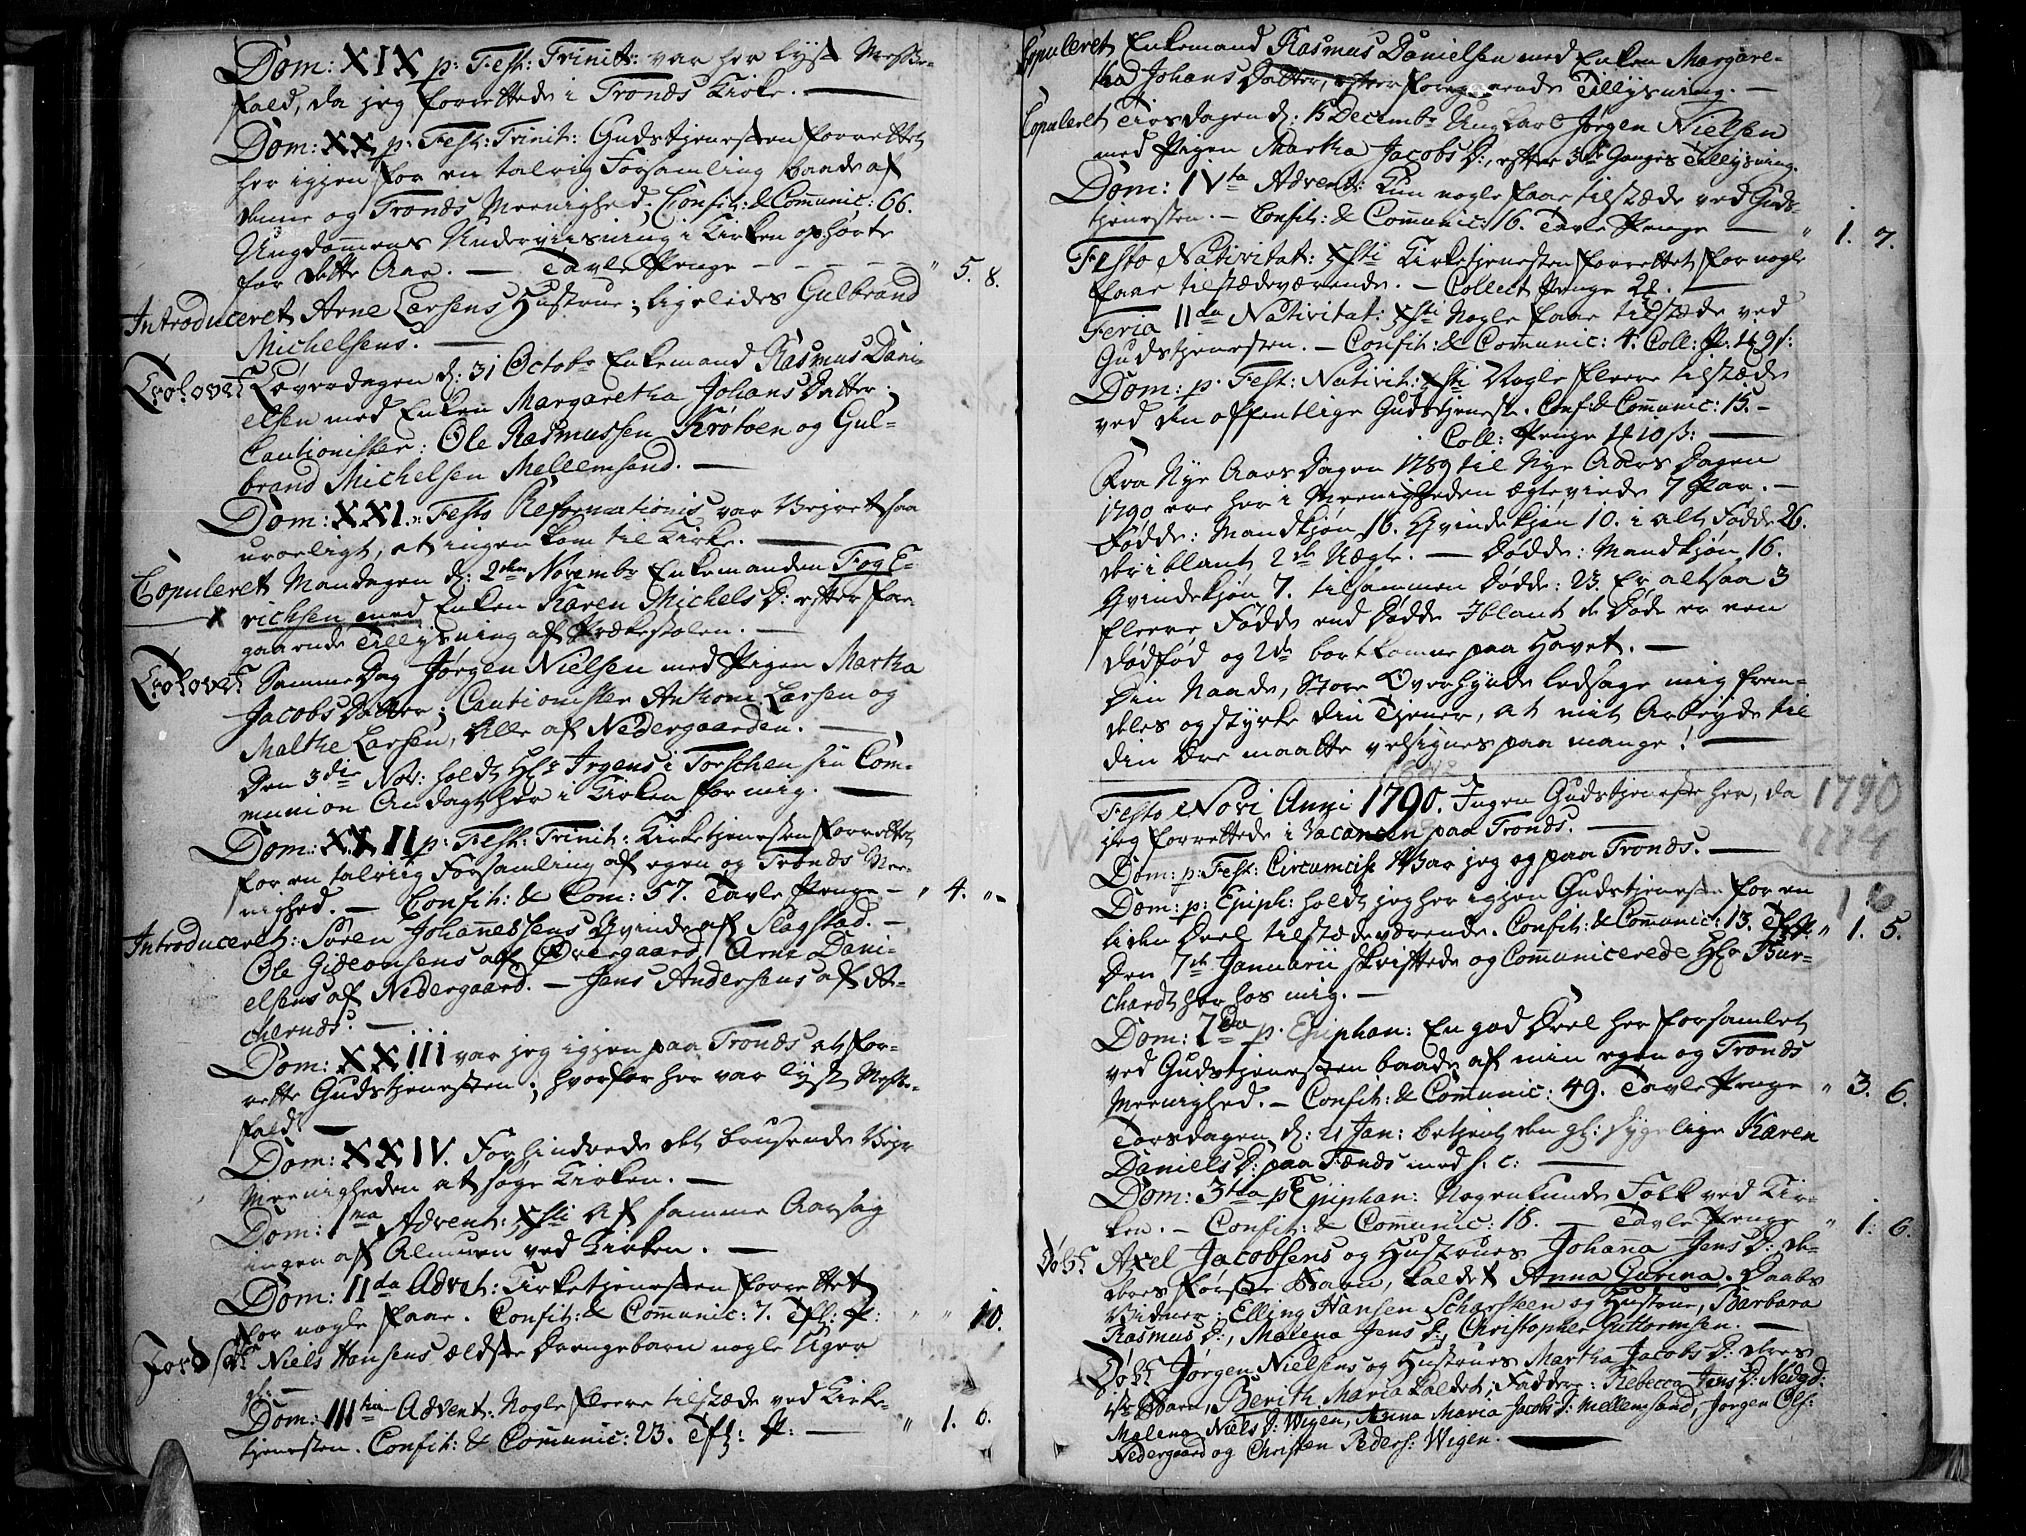 Dom: XIX p: Fest: Trinit: var her lyst Messe-
fald, da jeg forrettede i Tronds Kirke. —
Dom: XX p: Fest: Trinit: Gudstjenesten forrettet
her igjen for en talrig Forsamling baade af
denne og Tronds Meenighed. Confit: & Com̅unic: 66.
Ungdom̅ens Underviisning i Kirken ophørte
for dette Aar. — Tavle Penge - - - - - " 5. 8.
Introduceret Arne Larsens Hustrue; ligeledes Gulbrand
Michelsens. —
Trolovet Løverdagen d: 31 Octobr Enkemand Rasmus Dani-
elsen med Enken Margaretha Johans Datter;
Cautionister: Ole Rasmussen Krøtøen og Gul-
brand Michelsen Mellemsand. —
Dom: XXI. Festo Reformationis var Vejret saa
uroeligt, at ingen kom til Kirke. —
Copuleret Mandagen d: 2den Novembr Enkemanden Fog E-
richsen med Enken Karen Michels D: efter fore-
gaaende Tillysning af Prækestolen. —
Trolovet Samme Dag Jørgen Nielsen med Pigen Martha
Jacobs Datter; Cautionister Anthoni Larsen og
Malthe Larsen, Alle af Nedergaarden. —
Den 3die Nov: holdt Hr Irgens i Torschen sin Com-
munion Andagt her i Kirken for mig. —
Dom: XXII p: Fest: Trinit: Kirketjenesten forrettet
for en talriig Forsamling af egen og Tronds Mee-
nighed. — Confit: & Com: 57. Tavle Penge — " 4. " -
Introduceret: Søren Johan̅essens Qvinde af Slagstad. —
Ole Gideonsens af Øvergaard, Arnt Dani-
elsens af Nedergaard. — Jens Andersens af At-
chernds. —
Dom: XXIII var jeg igjen paa Tronds at for-
rette Gudstjenesten; hvorfor her var lyst Messe-
fald. —
Dom: XXIV. Forhindrede det brusende Vejr
Meenigheden at søge Kirken. —
Dom: 1ma Advent: Xsti Af samme Aarsag
ingen af Almuen ved Kirken. —
Dom: IIda Advt: Kirketjenesten forrettet
for nogle faae. Confit: & Com̅unic: 7. Tfl: P: " " 10.
Jordf: Niels Hansens ældste Drengebarn nogle Uger
gl: —
Dom: IIItia Advent: Nogle fleere tilstæde ved Kirke-
tjenesten. Confit: & Com̅unic: 23. Tfl: P: — " 1. 0.
Copuleret Enkemand Rasmus Danielsen med Enken Margare-
tha Johans Datter, efter foregaaende Tillysning. —
Copuleret Tirsdagen d: 15 Decembr Ung Karl Jørgen Nielsen
med Pigen Martha Jacobs D:, efter 3de Ganges Tillysning.
Dom: IVta Advent: Kun nogle faae tilstæde ved Guds-
tjenesten. — Confit: & Com̅unic: 16. Tavle Penge — " 1. 7.
Festo Nativitat: Xsti Kirketjenesten forrettet for nogle
faae tilstædeværende. — Collect Penge
Feria IIda Nativitat: Xsti Nogle faae tilstæde ved
Gudstjenesten. — Confit: & Com̅unic: 4. Coll: P:
Dom: p: Fest: Nativit: Xsti Nogle fleere tilstæde
ved den offentlige Gudstjeneste. Conf: & Com̅unic: 15. —
Coll: Penge 10 ß: —
Fra Nye Aars Dagen 1789 til Nye Aars Dagen
1790 ere her i Meenigheden ægteviede 7 Par. —
Fødde: Mandkjøn 16. Qvindekjøn 10. i alt Fødde 26.
deriblant 2de Uægte. — Dødde: Mandkjøn 16.
Qvindekjøn 7. tilsammen Dødde: 23. Er altsaa 3
fleere Fødde end Dødde. Iblant de Døde er een
dødfød og 2de bortkomne paa Havet. —
Din Naade, Store Overhyrde ledsage mig frem-
deles og styrke din Tjener, at mit Arbeyde til
din Ære maatte velsignes paa mange! —
1790
Festo Novi Anni 1790. Ingen Gudstjeneste her, da
jeg forrettede i Vacansen paa Tronds. —
Dom: p: Fest: Circumcis: Var jeg og paa Tronds. —
Dom: p: Epiph: holdt jeg her igjen Gudstjeneste for en
liden Deel tilstædeværende. Confit: & Com̅unic: 13. Tfl: P: " 1. 5.
Den 7de Januarii skriftede og Com̅unicerede Hr Bur-
chardt her hos mig. —
Dom: 2da p. Epiphan: En god Deel her forsamlet
ved Gudstjenesten baade af min egen og Tronds
Meenighed. — Confit: & Com̅unic: 49. Tavle Penge " 3. 6.
Torsdagen d: 21 Jan: betjent den gl: sygelige Karen
Daniels D: paa Fænds med s. c: —
Dom: 3tia p Epiphan: Nogenlunde Folk ved Kir-
ken. — Confit: & Com̅unic: 18. — Tavle Penge " 1: 6.
Døbt Axel Jacobsens og Hustrues Johan̅a Jens D: de-
res første Barn, kaldet Anna Gurina. Daabs
Vidner: Elling Hansen Scharsteen og Hustrue, Barbara
Rasmus D:, Malena Jens D:, Christopher Guttormsen. —
Døbt Jørgen Nielsens og Hustrues Martha Jacobs D: deres
1ste Barn, Berith Maria kaldet; Faddere: Rebecca Jens D: Nedgd:
Malena Niels D: Wigen, Anna Maria Jacobs D: Mellemsand, Jørgen Ols:
Nedergaard og Christen Peders: Wigen. —